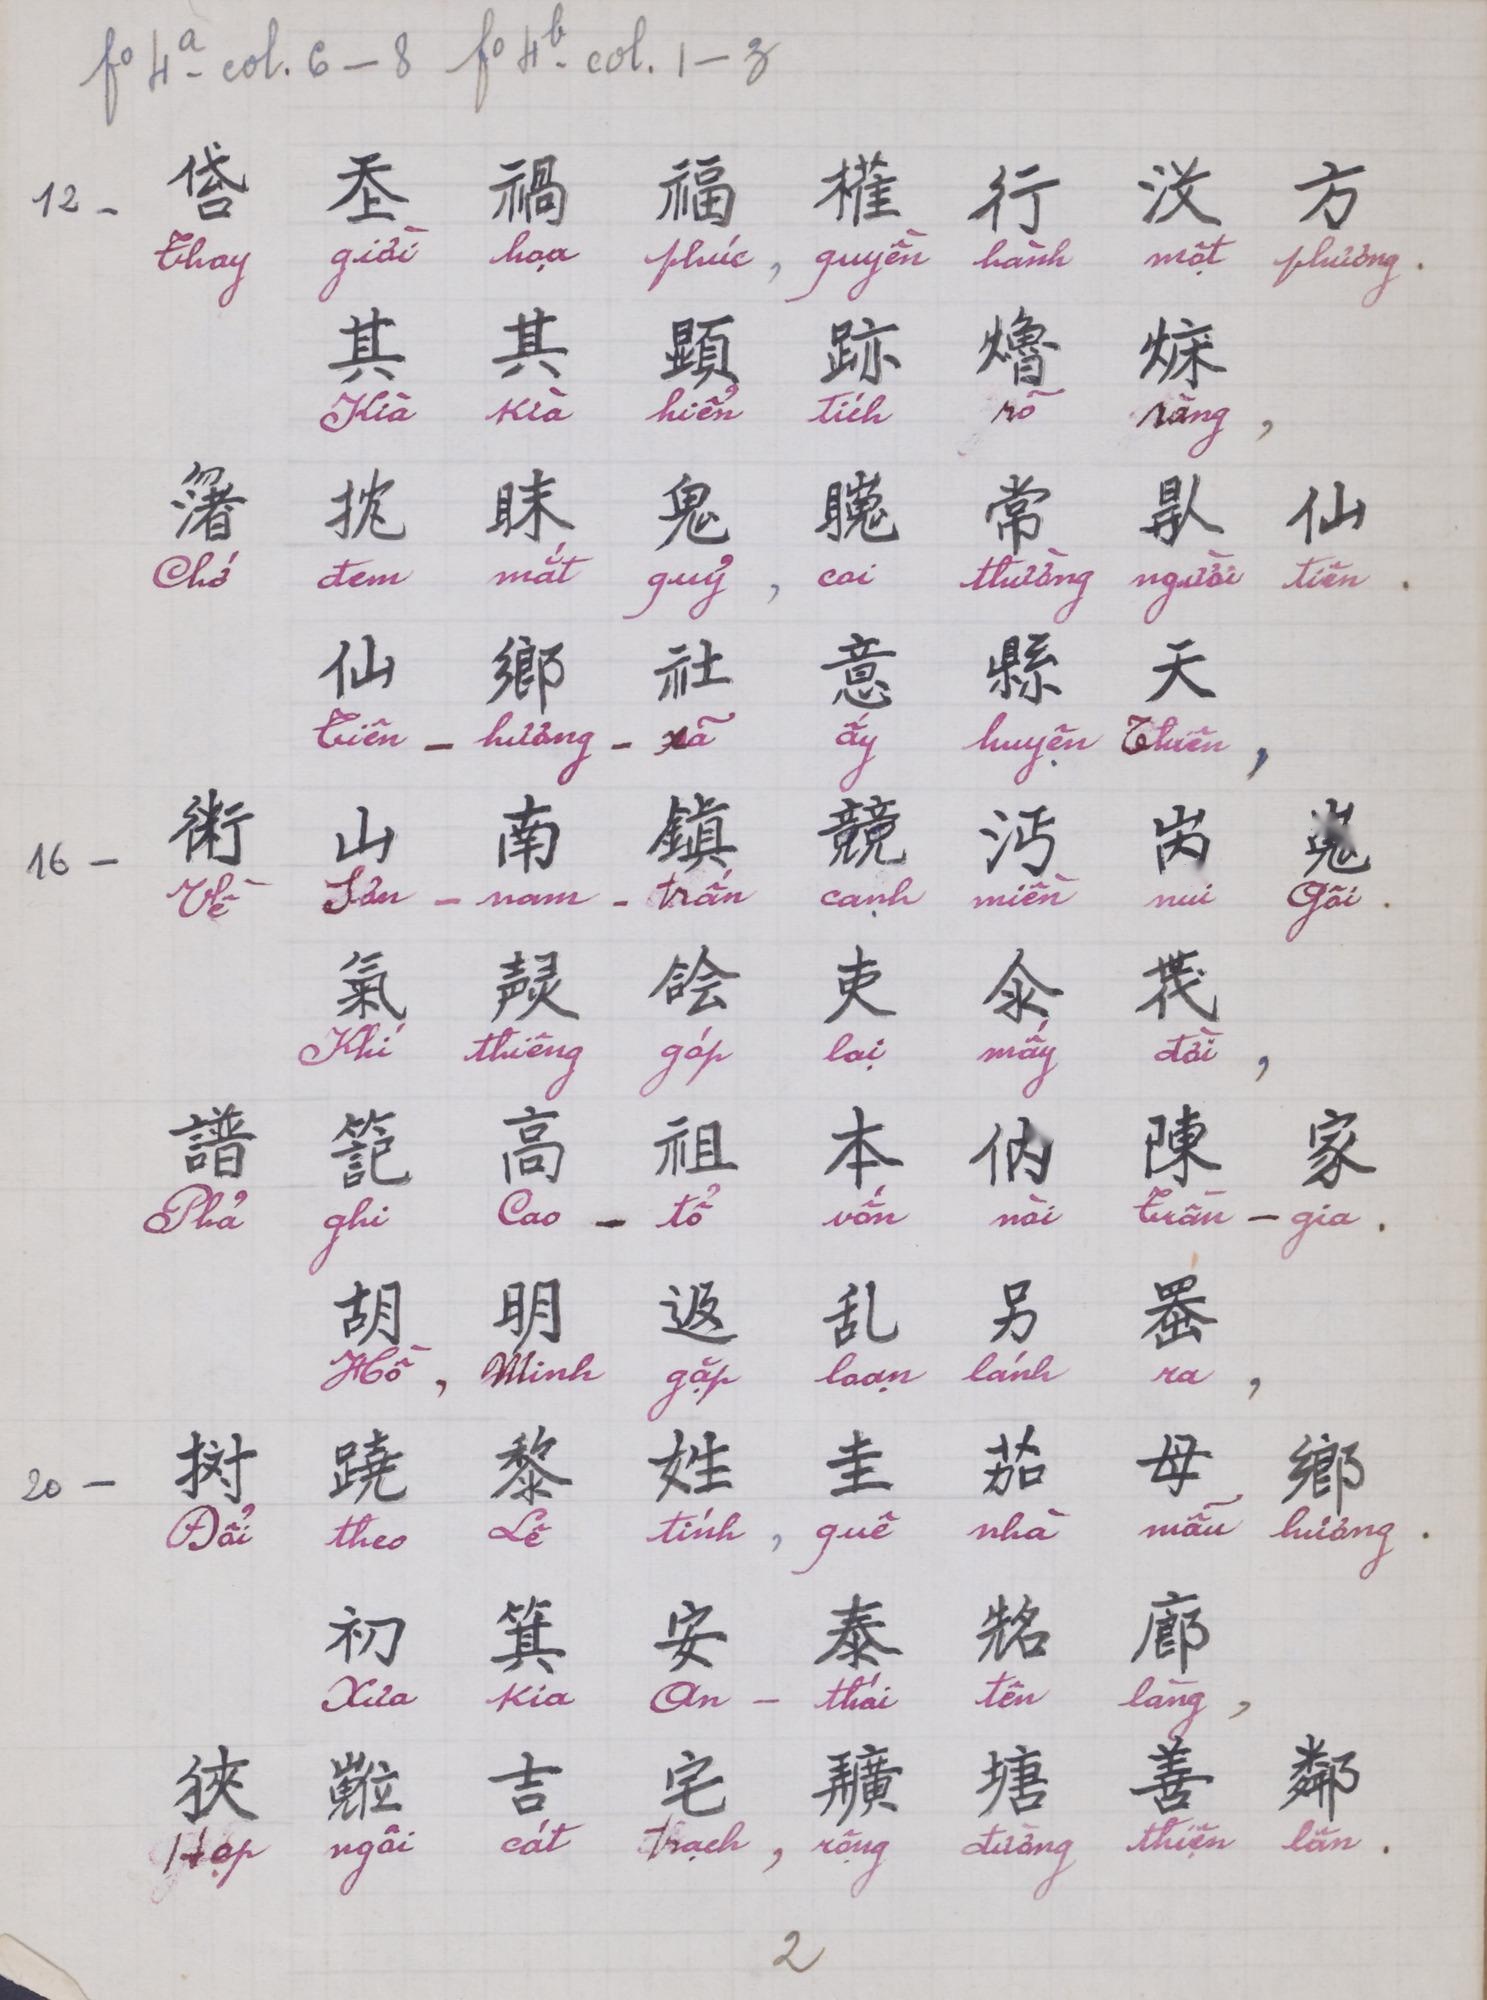 fº 4ª col. 6 – 8 fº 4ᵇ col. 1 – 3
12 – 𠊝 𡗶 禍 福 權 行 沒 方
Thay giời họa phúc, quyền hành một phương.
其 其 顕 跡 𤏣 𤉜
Kià kià hiển tích rõ ràng,
渚 抌 眜 鬼 䀡 常 𠊛 仙
Chớ đem mắt quỷ, coi thường người tiên.
仙 鄉 社 意 縣 天
Tiên – hương – xã ấy huyện Thiên,
16 – 術 山 南 鎮 競 沔 𡶀 嵬
Về Sơn – nam – trấn cạnh miền núi Gôi.
氣 𤍌 㑹 吏 𠇍 𠁀
Khí thiêng góp lại mấy đời,
譜 𥱬 高 祖 本 㐻 陳 家
Phả ghi Cao – tổ vốn nòi Trần – gia.
胡 明 返 乱 另 𦋦
Hồ, Minh gặp loạn lánh ra,
20 – 𢬭 蹺 黎 姓 圭 茹 母 鄉
Đổi theo Lê tính, quê nhà mẫu hương.
初 箕 安 泰 𠸛 廊
Xưa kia An – thái tên làng,
狹 嵬 吉 宅 𢌌 塘 善 鄰
Hẹp ngôi cát trạch, rộng đường thiện lân.
2